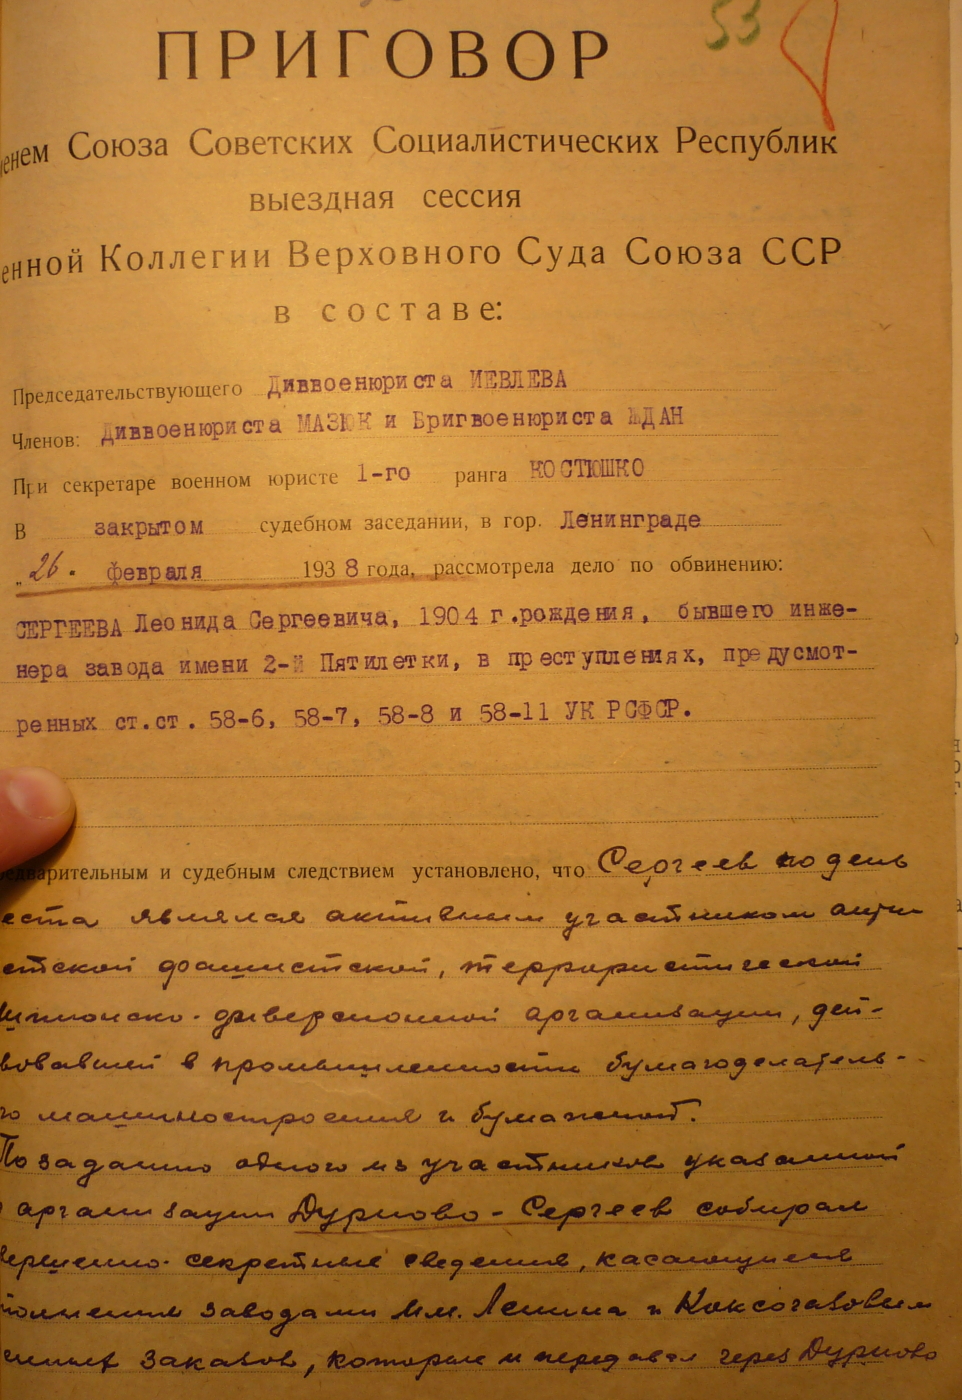 53
ПРИГОВОР
енем Союза Советских Социалистических Республик
выездная сессия
енной Коллегии Верховного Суда Союза ССР
в составе:
Председательствующего Диввоенюриста ИЕВЛЕВА
Членов: Диввоенюриста МАЗЮК и Бригвоенюриста ЖДАН
При секретаре военном юристе 1-го ранга КОСТЮШКО
В закрытом судебном заседании, в гор. Ленинграде
„26. февраля 1938 года, рассмотрела дело по обвинению:
СЕРГЕЕВА Леонида Сергеевича, 1904 г.рождения, бывшего инже-
нера завода имени 2-й Пятилетки, в преступлениях, предусмот-
ренных ст.ст. 58-6, 58-7, 58-8 и 58-11 УК РСФСР.
едварительным и судебным следствием установлено, что Сергеев по день
еста являлся активным участником анти
етской фашистской, террористической
шпионско-диверсионной организации, дей-
вовавшей в промышленности бумагоделатель-
го машиностроения и бумажной.
По заданию одного из участников указанной
организации Дурново - Сергеев собирал
вершенно-секретные сведения, касающиеся
полнения заводами им. Ленина и Коксогазовым
енных заказов, которые и передавал через Дурново